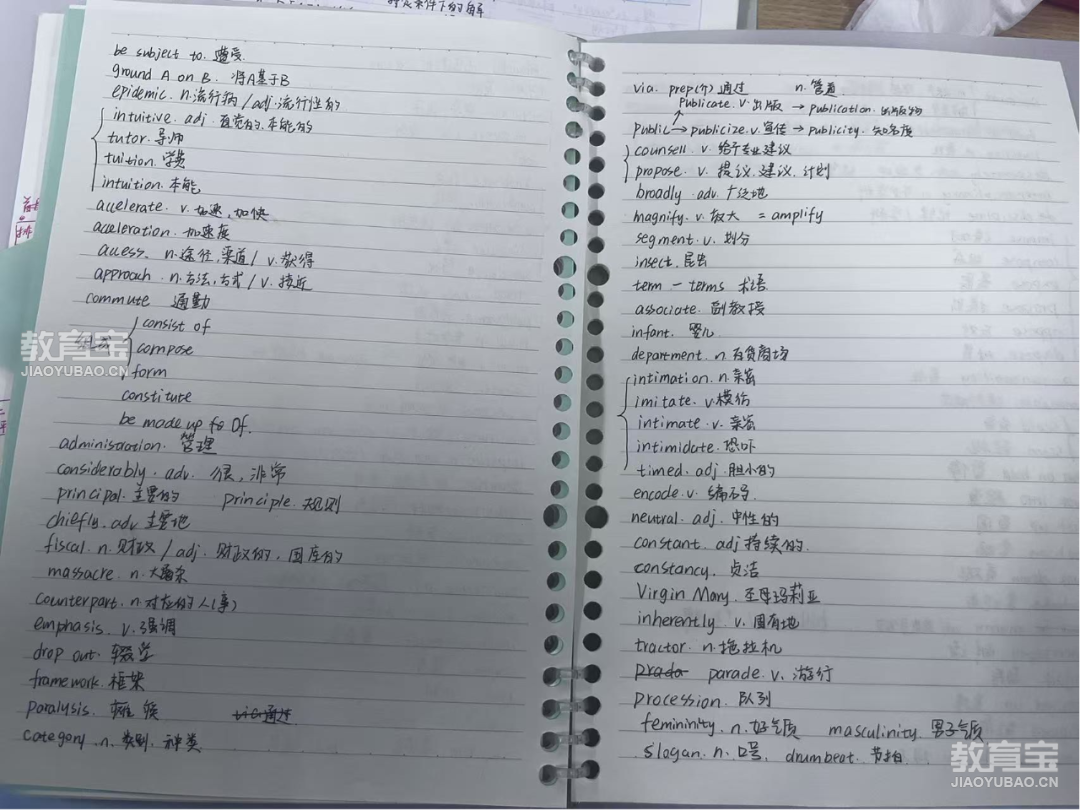 时定条件下的解
be subject to. 遭受.
ground A on B. 将A基于B
epidemic. n.流行病 / adj.流行性的
intuitive. adj. 直觉的,本能的
tutor. 导师
tuition. 学费
intuition. 本能
accelerate. v. 加速,加快
acceleration. 加速度
access. n.途径,渠道 / v.获得
approach. n.方法,方式 / v. 接近
commute 通勤
consist of
compose
form
constitute
be made up fo Of.
administration. 管理
considerably. adv. 很,非常
principal. 主要的 principle. 规则
chiefly. adv 主要地
fiscal. n.财政 / adj. 财政的,国库的
massacre. n.大屠杀
counterpart. n.对应的人(事)
emphasis. v.强调
drop out. 辍学
framework. 框架
paralysis. 瘫痪 via 通过
category. n.类别. 种类
via. prep(介) 通过 n.管道
publicate. v.出版 → publication. 出版物
public → publicize. v.宣传 → publicity. 知名度
counsell. v. 给予专业建议
propose. v. 提议.建议. 计划
broadly. adv. 广泛地
magnify. v.放大 = amplify
segment. v. 划分
insect. 昆虫
term - terms 术语
associate. 副教授
infant. 婴儿
department. n.百货商场
intimation. n.亲密
imitate. v.模仿
intimate. v. 亲密
intimidate. 恐吓
timed. adj. 胆小的
encode. v. 编码.
neutral. adj. 中性的
constant. adj 持续的.
constancy. 贞洁
Virgin Mary. 圣母玛莉亚
inherently v. 固有地
tractor. n.拖拉机
prada parade. v. 游行
procession. 队列
femininity. n.好气质 masculinity. 男子气质
slogan. n. 口号. drumbeat. 节拍.
教育宝
JIAOYUBAO.CN
教育宝
JIAOYUBAO.CN